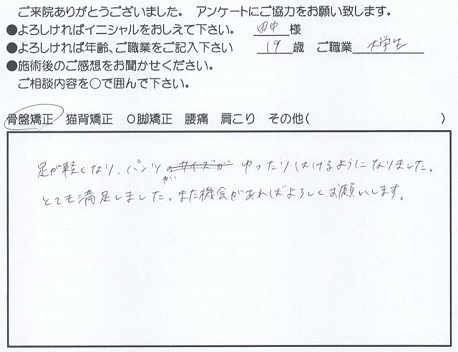 ご来院ありがとうございました。 アンケートにご協力をお願い致します。
●よろしければイニシャルをおしえて下さい。 田中 様
●よろしければ年齢、ご職業をご記入下さい 19 歳 ご職業 大学生
●施術後のご感想をお聞かせください。
ご相談内容を○で囲んで下さい。
骨盤矯正 猫背矯正 O脚矯正 腰痛 肩こり その他( )
足が軽くなり、パンツのサイズが ゆったりはけるようになりました。
が
とても満足しました。また機会があればよろしくお願いします。